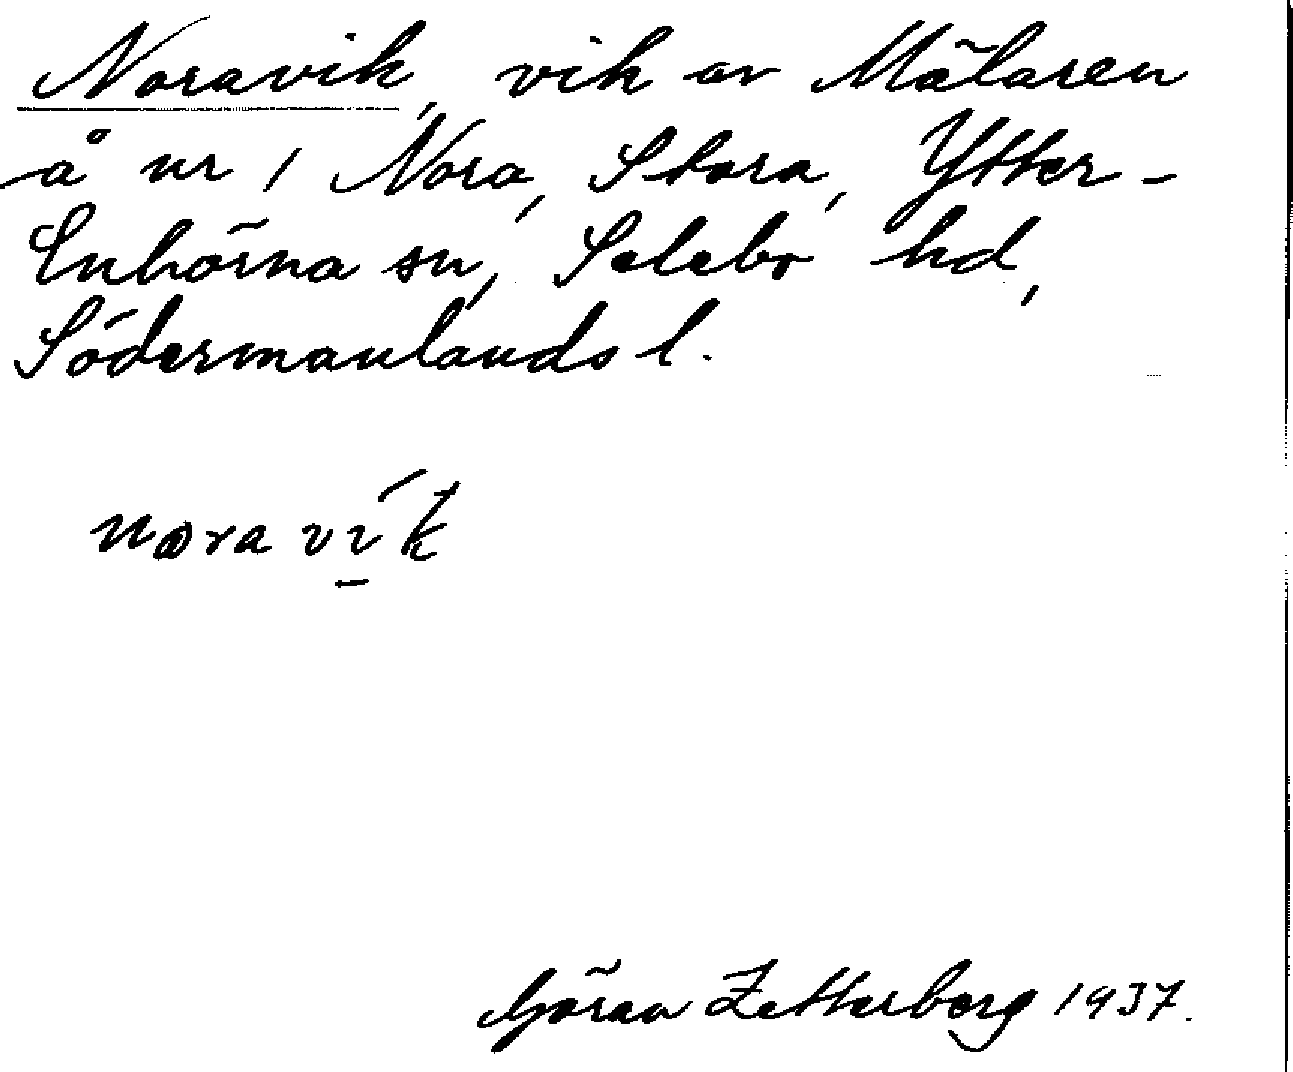 Noravik, vik av Mälaren
å nr 1 Nora, Stora, Ytter-
Enhörna sn, Selebo hd,
Södermanlands l.
Göran Zetterberg 1937.